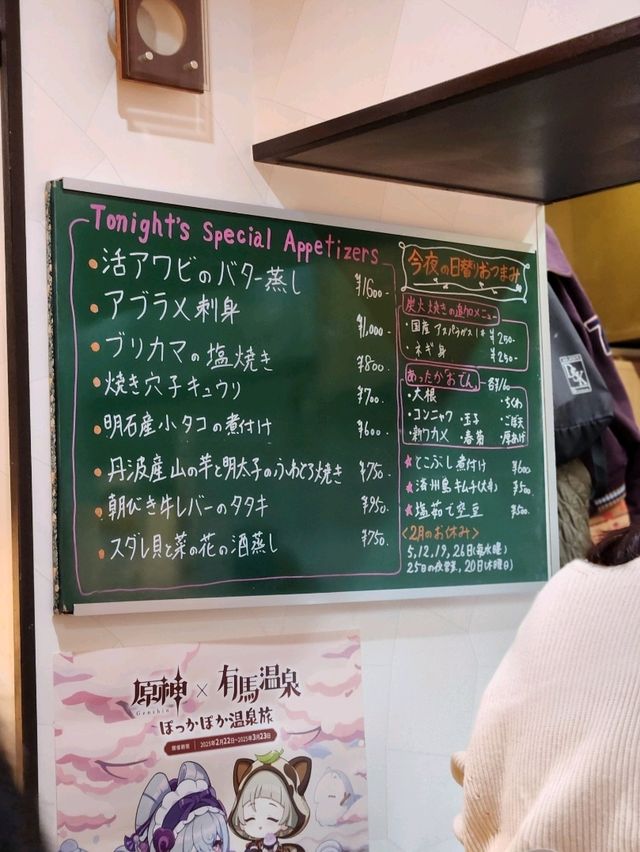 Tonight's Special Appetizers
・活アワビのバター蒸し ¥1600-
・アブラメ刺身 ¥1,000-
・ブリカマの塩焼き ¥800-
・焼き穴子キュウリ ¥700.
・明石産小タコの煮付け ¥600.
・丹波産山の芋と明太子のふわとろ焼き ¥750.
・朝びき牛レバーのタタキ ¥950.
・スダレ貝と菜の花の酒蒸し ¥750.
今夜の日替りおつまみ
炭火焼きの追加メニュー
・国産アスパラガス1本 ¥250-
・ネギ身 ¥250-
あったかおでん
・大根 ・ちくわ
・コンニャク ・玉子 ・ごぼ天
・新ワカメ ・春菊 ・厚あげ
★とこぶし煮付け ¥600
★済州島キムチ(大根) ¥500.
★塩茹で空豆 ¥500.
<2月のお休み>
5,12,19,26日(毎水曜)
25日の夜営業,20日(木曜日)
原神 × 有馬温泉
Genshin
ぽっかぽか温泉旅
開催期間 2025年2月22日~2025年3月23日